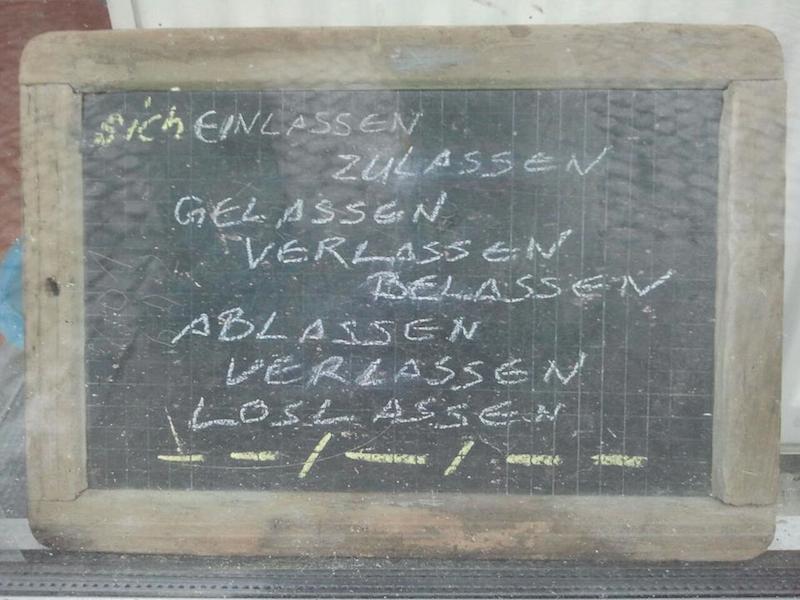 sich EINLASSEN
ZULASSEN
GELASSEN
VERLASSEN
BELASSEN
ABLASSEN
VERLASSEN
LOSLASSEN
_ _ / _ / _ _